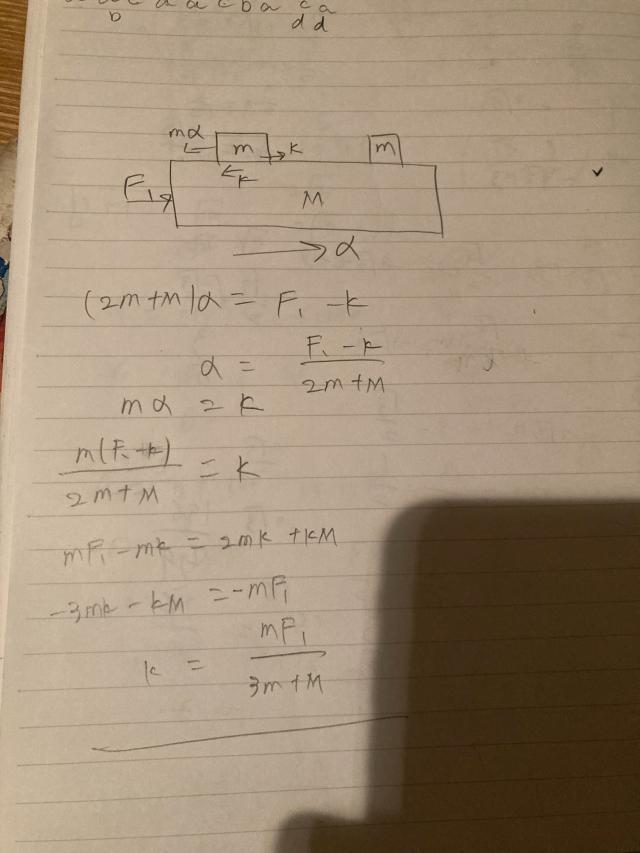 b
d d
mα
m
k
m
k
F₁
M
α
(2m+M)α = F₁ - k
α = \frac{F₁ - k}{2m+M}
mα = k
\frac{m(F₁-k)}{2m+M} = k
mF₁ - mk = 2mk + kM
-3mk - kM = -mF₁
k = \frac{mF₁}{3m+M}